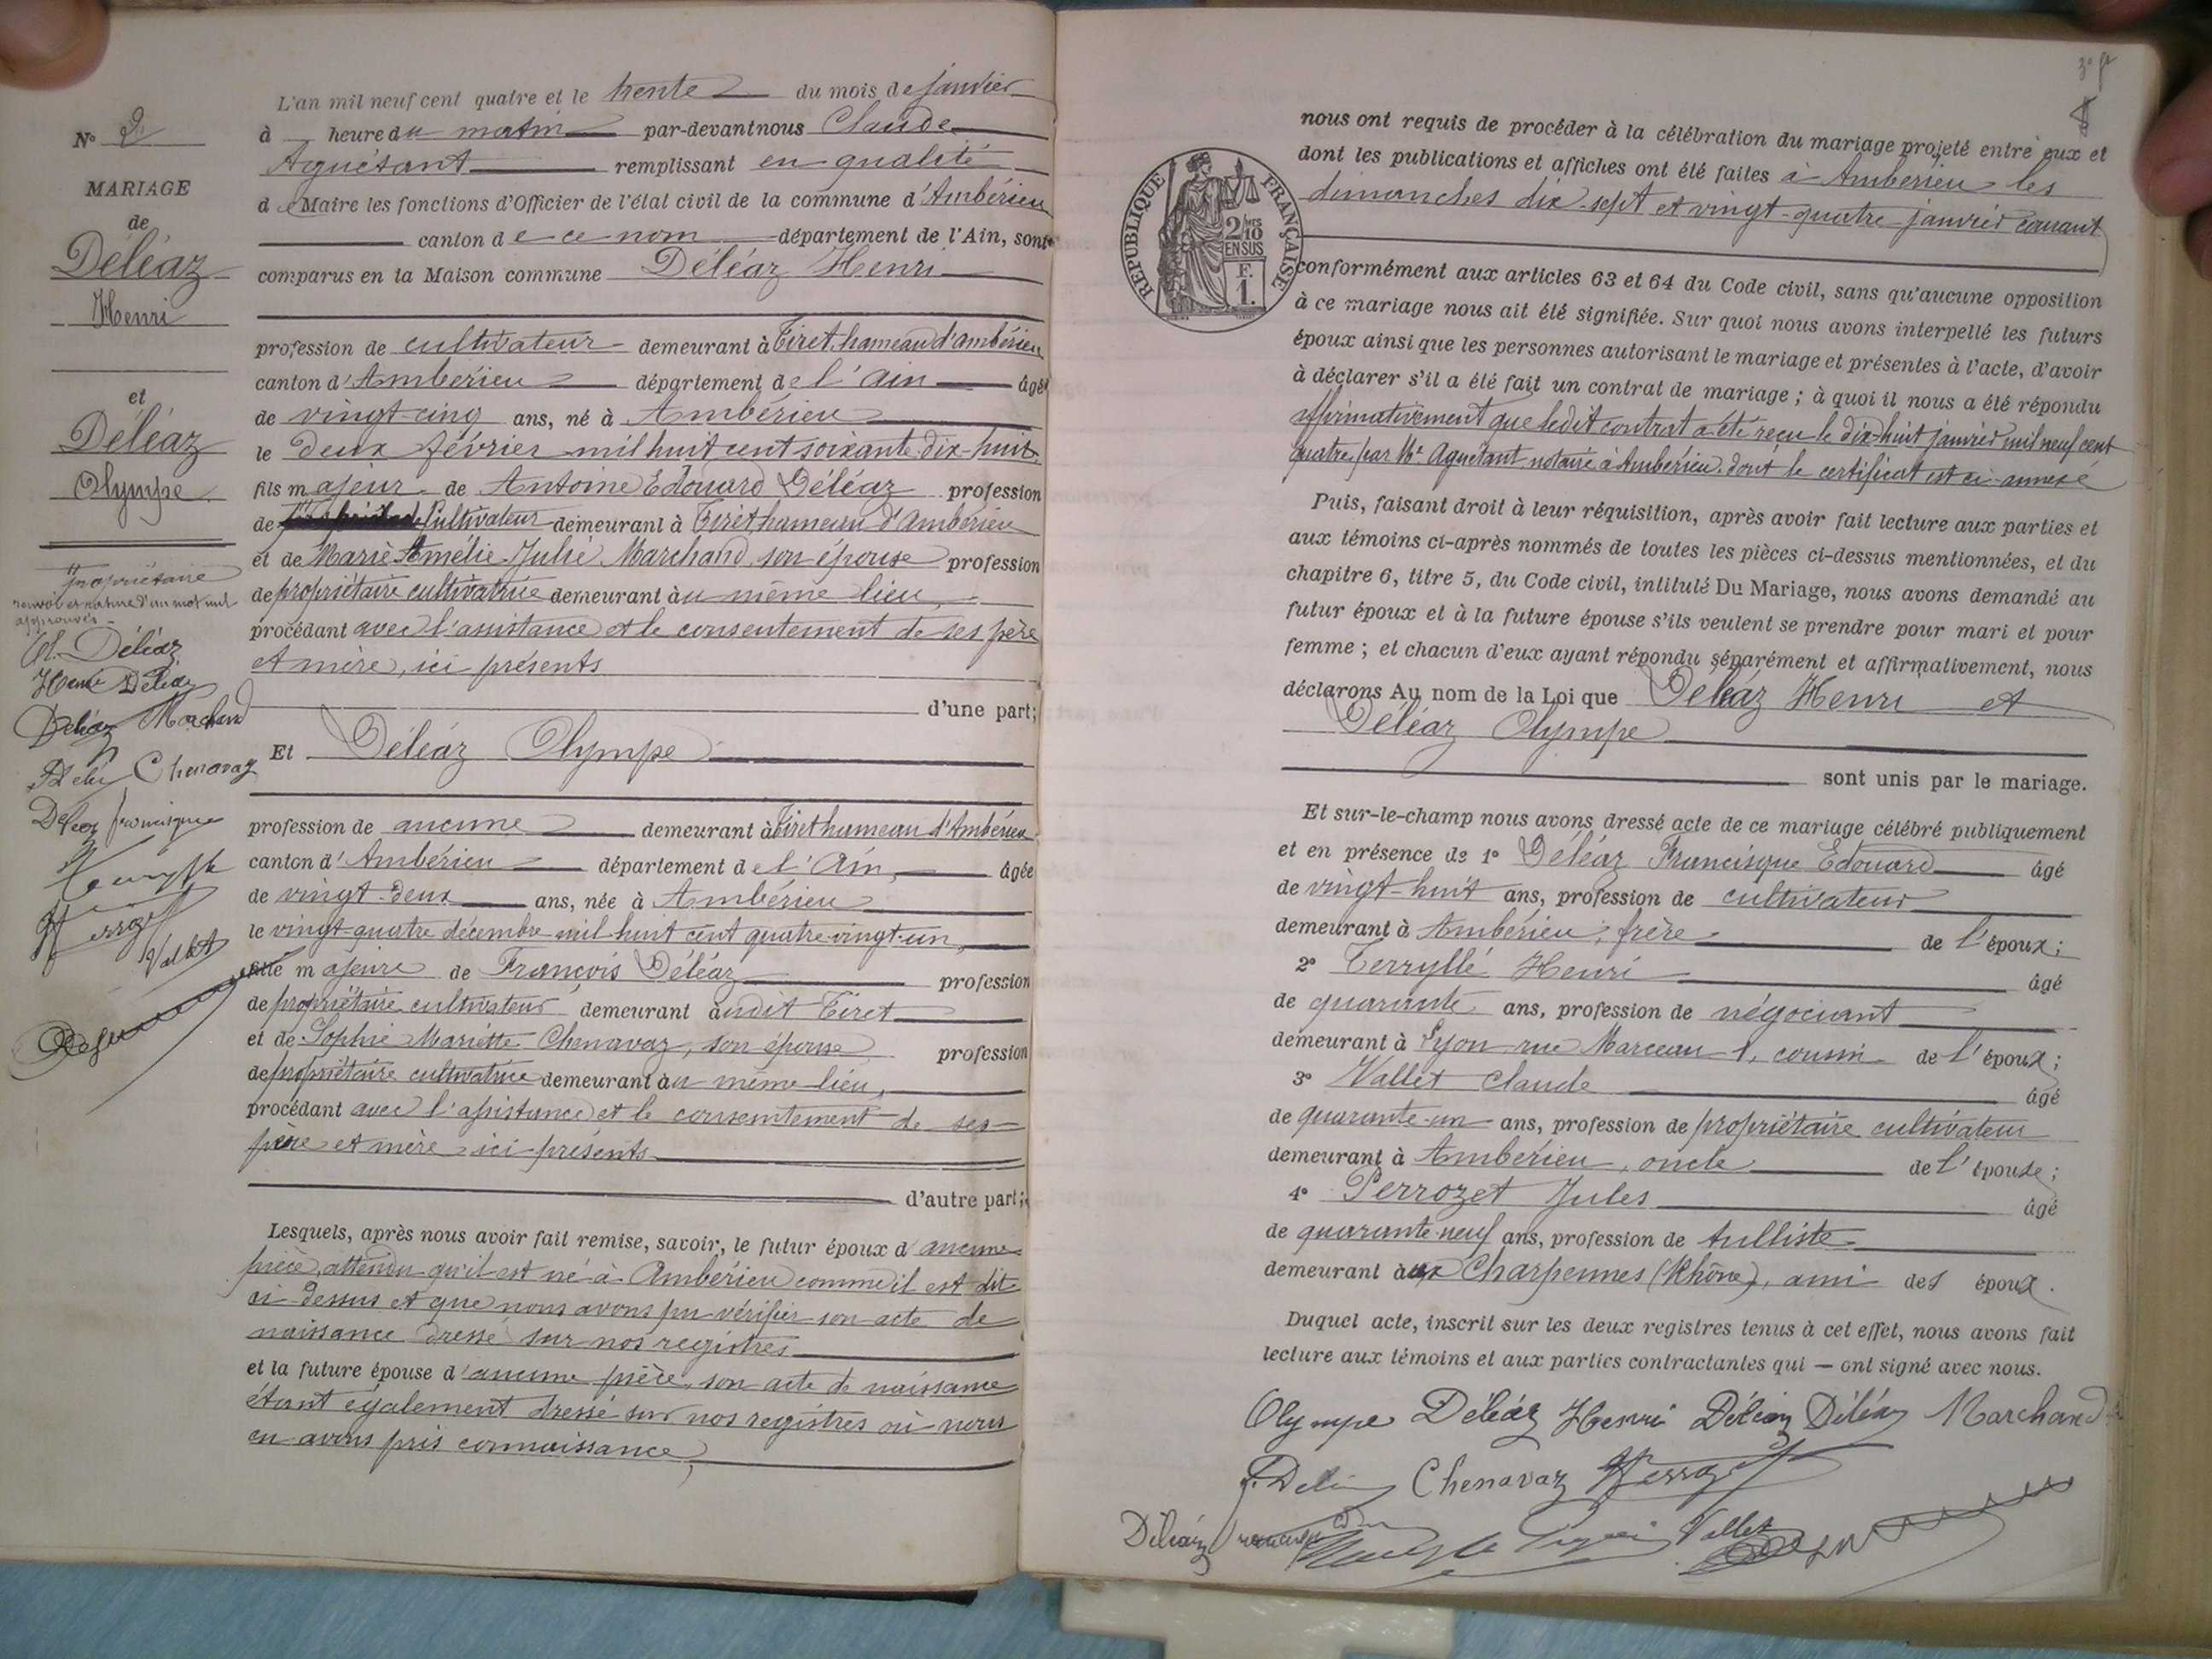 N° 2
MARIAGE
de
Déléaz
Henri
et
Déléaz
Olympe
propriétaire
renvoi et rature d'un mot nul
approuvés
Ol. Déléaz
Henri Déléaz
Déléaz Marchand
Chenavaz
Déléaz francisque
Vallet
L'an mil neuf cent quatre et le trente du mois de janvier
à heure du matin par-devant nous Claude
Aguétant remplissant en qualité
de Maire les fonctions d'Officier de l'état civil de la commune d'Ambérieu
canton de ce nom département de l'Ain, sont
comparus en la Maison commune Déléaz Henri
profession de cultivateur demeurant à Tiret hameau d'Ambérieu
canton d'Ambérieu département de l'Ain âgé
de vingt-cinq ans, né à Ambérieu
le deux février mil huit cent soixante-dix-huit
fils majeur de Antoine Edouard Déléaz profession
de Cultivateur demeurant à Tiret hameau d'Ambérieu
et de Marie Amélie Julie Marchand son épouse profession
de propriétaire cultivatrice demeurant au même lieu,
procédant avec l'assistance et le consentement de ses père
et mère, ici présents
d'une part;
Et Déléaz Olympe
profession de aucune demeurant à Tiret hameau d'Ambérieu
canton d'Ambérieu département de l'Ain, âgée
de vingt-deux ans, née à Ambérieu
le vingt-quatre décembre mil huit cent quatre-vingt-un,
fille majeure de François Déléaz profession
de propriétaire cultivateur demeurant audit Tiret
et de Sophie Mariette Chenavaz, son épouse profession
de propriétaire cultivatrice demeurant au même lieu,
procédant avec l'assistance et le consentement de ses
père et mère ici présents
d'autre part;
Lesquels, après nous avoir fait remise, savoir, le futur époux d'aucune
pièce, attendu qu'il est né à Ambérieu comme il est dit
ci-dessus et que nous avons pu vérifier son acte de
naissance dressé sur nos registres
et la future épouse d'aucune pièce, son acte de naissance
étant également dressé sur nos registres où nous
en avons pris connaissance,
nous ont requis de procéder à la célébration du mariage projeté entre eux et
dont les publications et affiches ont été faites à Ambérieu les
dimanches dix-sept et vingt-quatre janvier courant
RÉPUBLIQUE FRANÇAISE
2/10
EN SUS
F.
1.
conformément aux articles 63 et 64 du Code civil, sans qu'aucune opposition
à ce mariage nous ait été signifiée. Sur quoi nous avons interpellé les futurs
époux ainsi que les personnes autorisant le mariage et présentes à l'acte, d'avoir
à déclarer s'il a été fait un contrat de mariage ; à quoi il nous a été répondu
affirmativement que ledit contrat a été reçu le dix-huit janvier mil neuf cent
quatre par Me Aguétant notaire à Ambérieu dont le certificat est ci-annexé
Puis, faisant droit à leur réquisition, après avoir fait lecture aux parties et
aux témoins ci-après nommés de toutes les pièces ci-dessus mentionnées, et du
chapitre 6, titre 5, du Code civil, intitulé Du Mariage, nous avons demandé au
futur époux et à la future épouse s'ils veulent se prendre pour mari et pour
femme ; et chacun d'eux ayant répondu séparément et affirmativement, nous
déclarons Au nom de la Loi que Déléaz Henri et
Déléaz Olympe
sont unis par le mariage.
Et sur-le-champ nous avons dressé acte de ce mariage célébré publiquement
et en présence de 1° Déléaz Francisque Edouard âgé
de vingt-huit ans, profession de cultivateur
demeurant à Ambérieu, frère de l'époux;
2° Terryllé Henri âgé
de quarante ans, profession de négociant
demeurant à Lyon rue Marceau 1, cousin de l'époux;
3° Vallet Claude âgé
de quarante-un ans, profession de propriétaire cultivateur
demeurant à Ambérieu, oncle de l'épouse;
4° Perrozet Jules âgé
de quarante-neuf ans, profession de tulliste
demeurant aux Charpennes (Rhône), ami des époux.
Duquel acte, inscrit sur les deux registres tenus à cet effet, nous avons fait
lecture aux témoins et aux parties contractantes qui — ont signé avec nous.
Olympe Déléaz Henri Déléaz Déléaz Marchand
Chenavaz
Déléaz Vallet